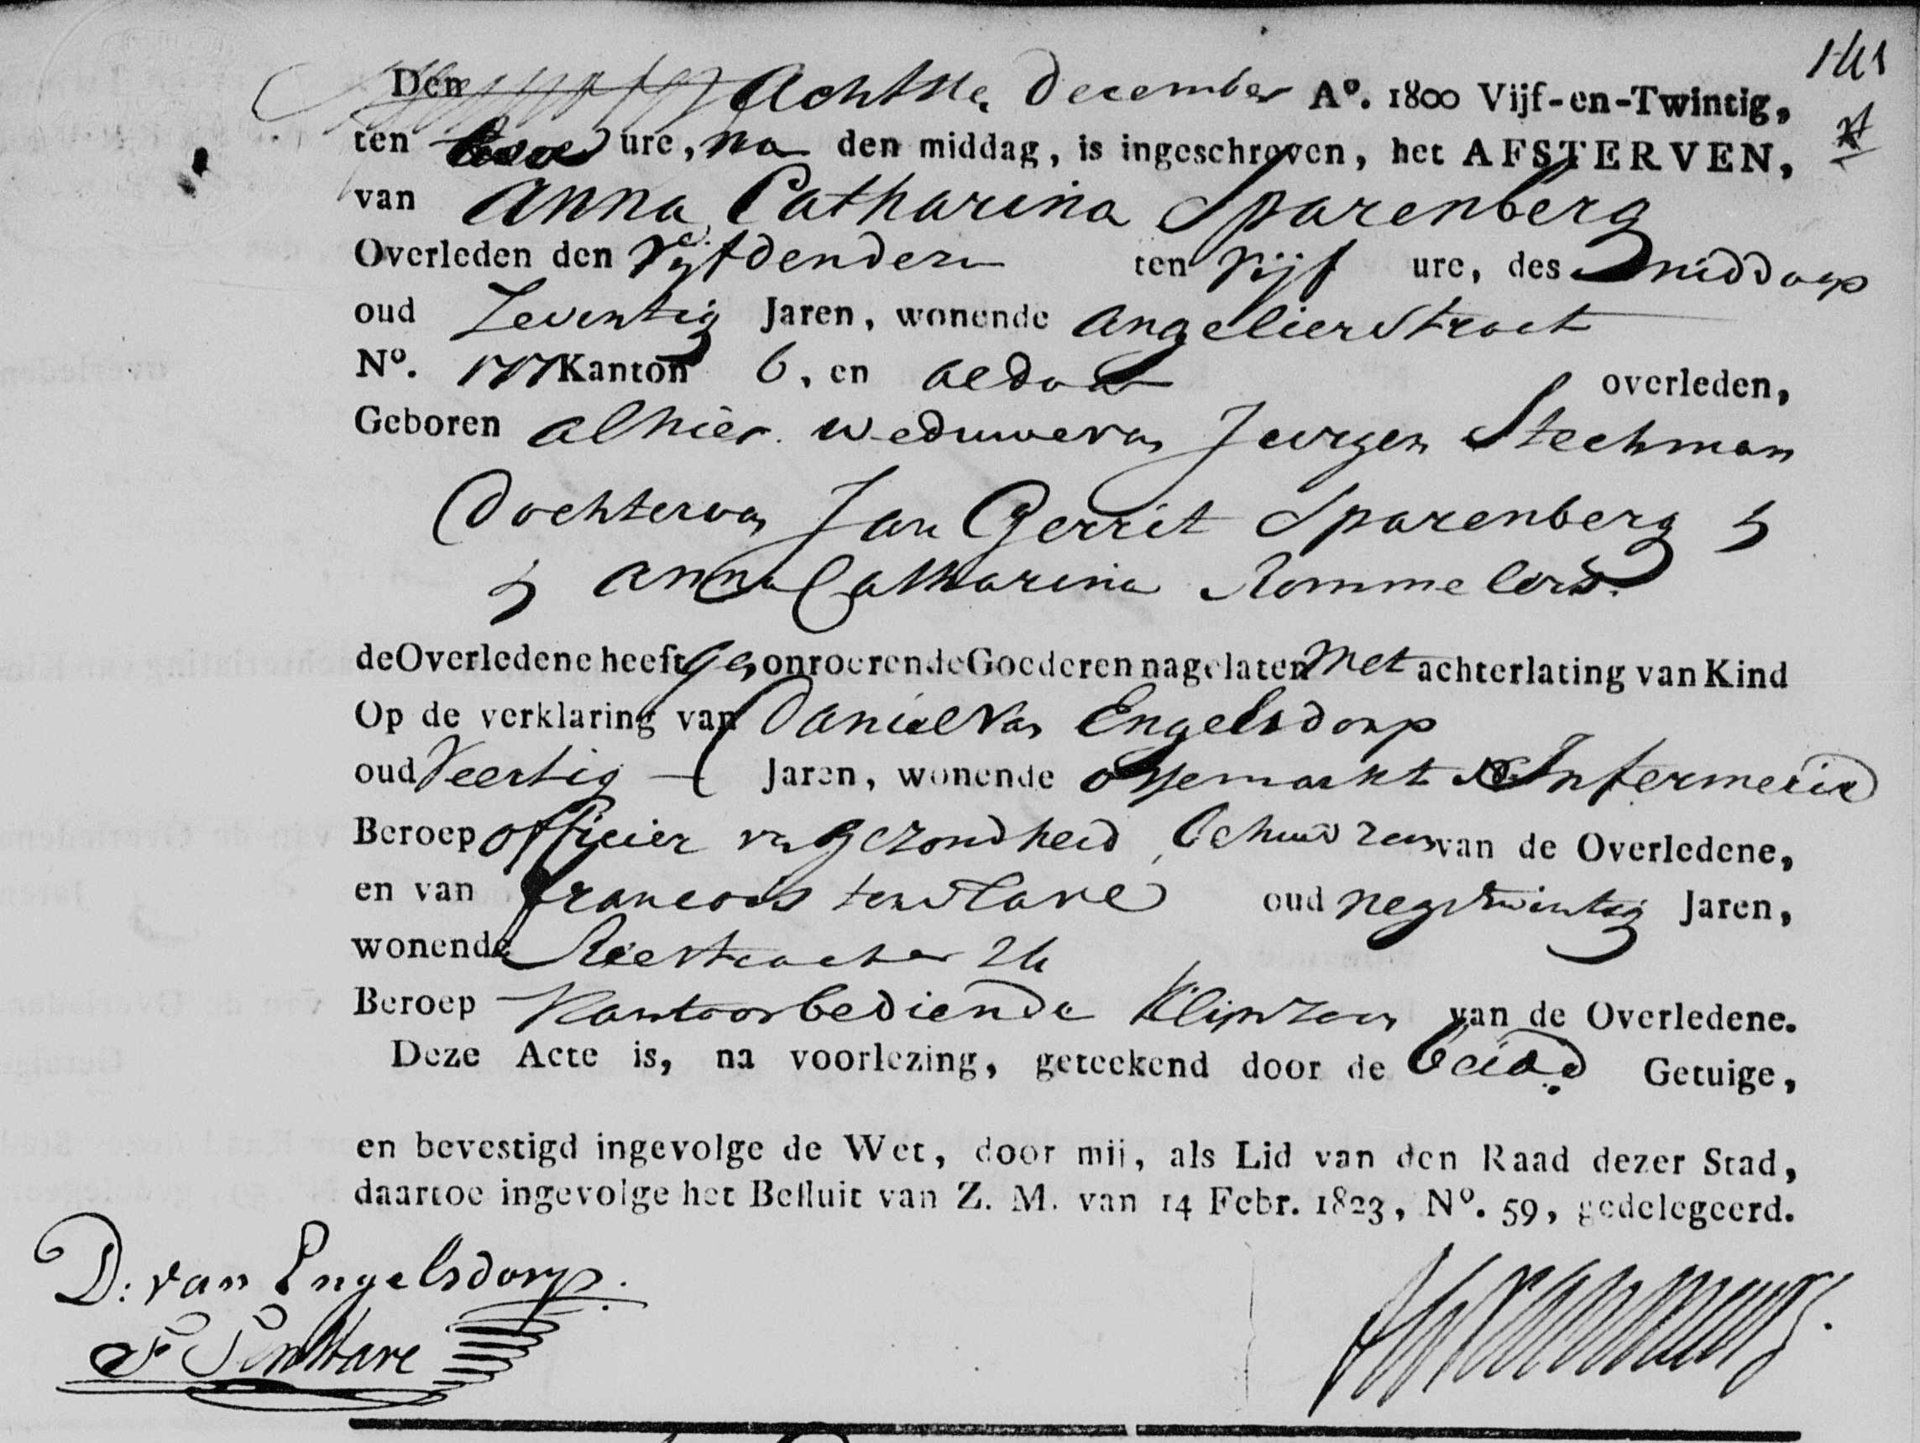 141
Den Achtste december Aº. 1800 Vijf-en-Twintig,
ten twee ure, na den middag, is ingeschreven, het AFSTERVEN,
van Anna Catharina Sparenberg
Overleden den Vijfdendezer ten vijf ure, des middags
oud Zeventig Jaren, wonende Angelierstraat
Nº. 177 Kanton 6, en aldaar overleden,
Geboren alhier weduwe van Jurgen Stechman
Dochter van Jan Gerrit Sparenberg
Anna Catharina Rommelers
de Overledene heeft gen onroerende Goederen nagelaten Met achterlating van Kind
Op de verklaring van Daniel van Engelsdorp
oud Veertig Jaren, wonende ossemarkt Infermerie
Beroep officier vn gezondheid Behuwdzoon van de Overledene,
en van francois tenHave oud negentwintig Jaren,
wonende Reestraat 24
Beroep Kantoorbediende Kleinzoon van de Overledene.
Deze Acte is, na voorlezing, geteekend door de beide Getuige,
en bevestigd ingevolge de Wet, door mij, als Lid van den Raad dezer Stad,
daartoe ingevolge het Besluit van Z. M. van 14 Febr. 1823, Nº. 59, gedelegeerd.
D. van Engelsdorp.
F TenHave